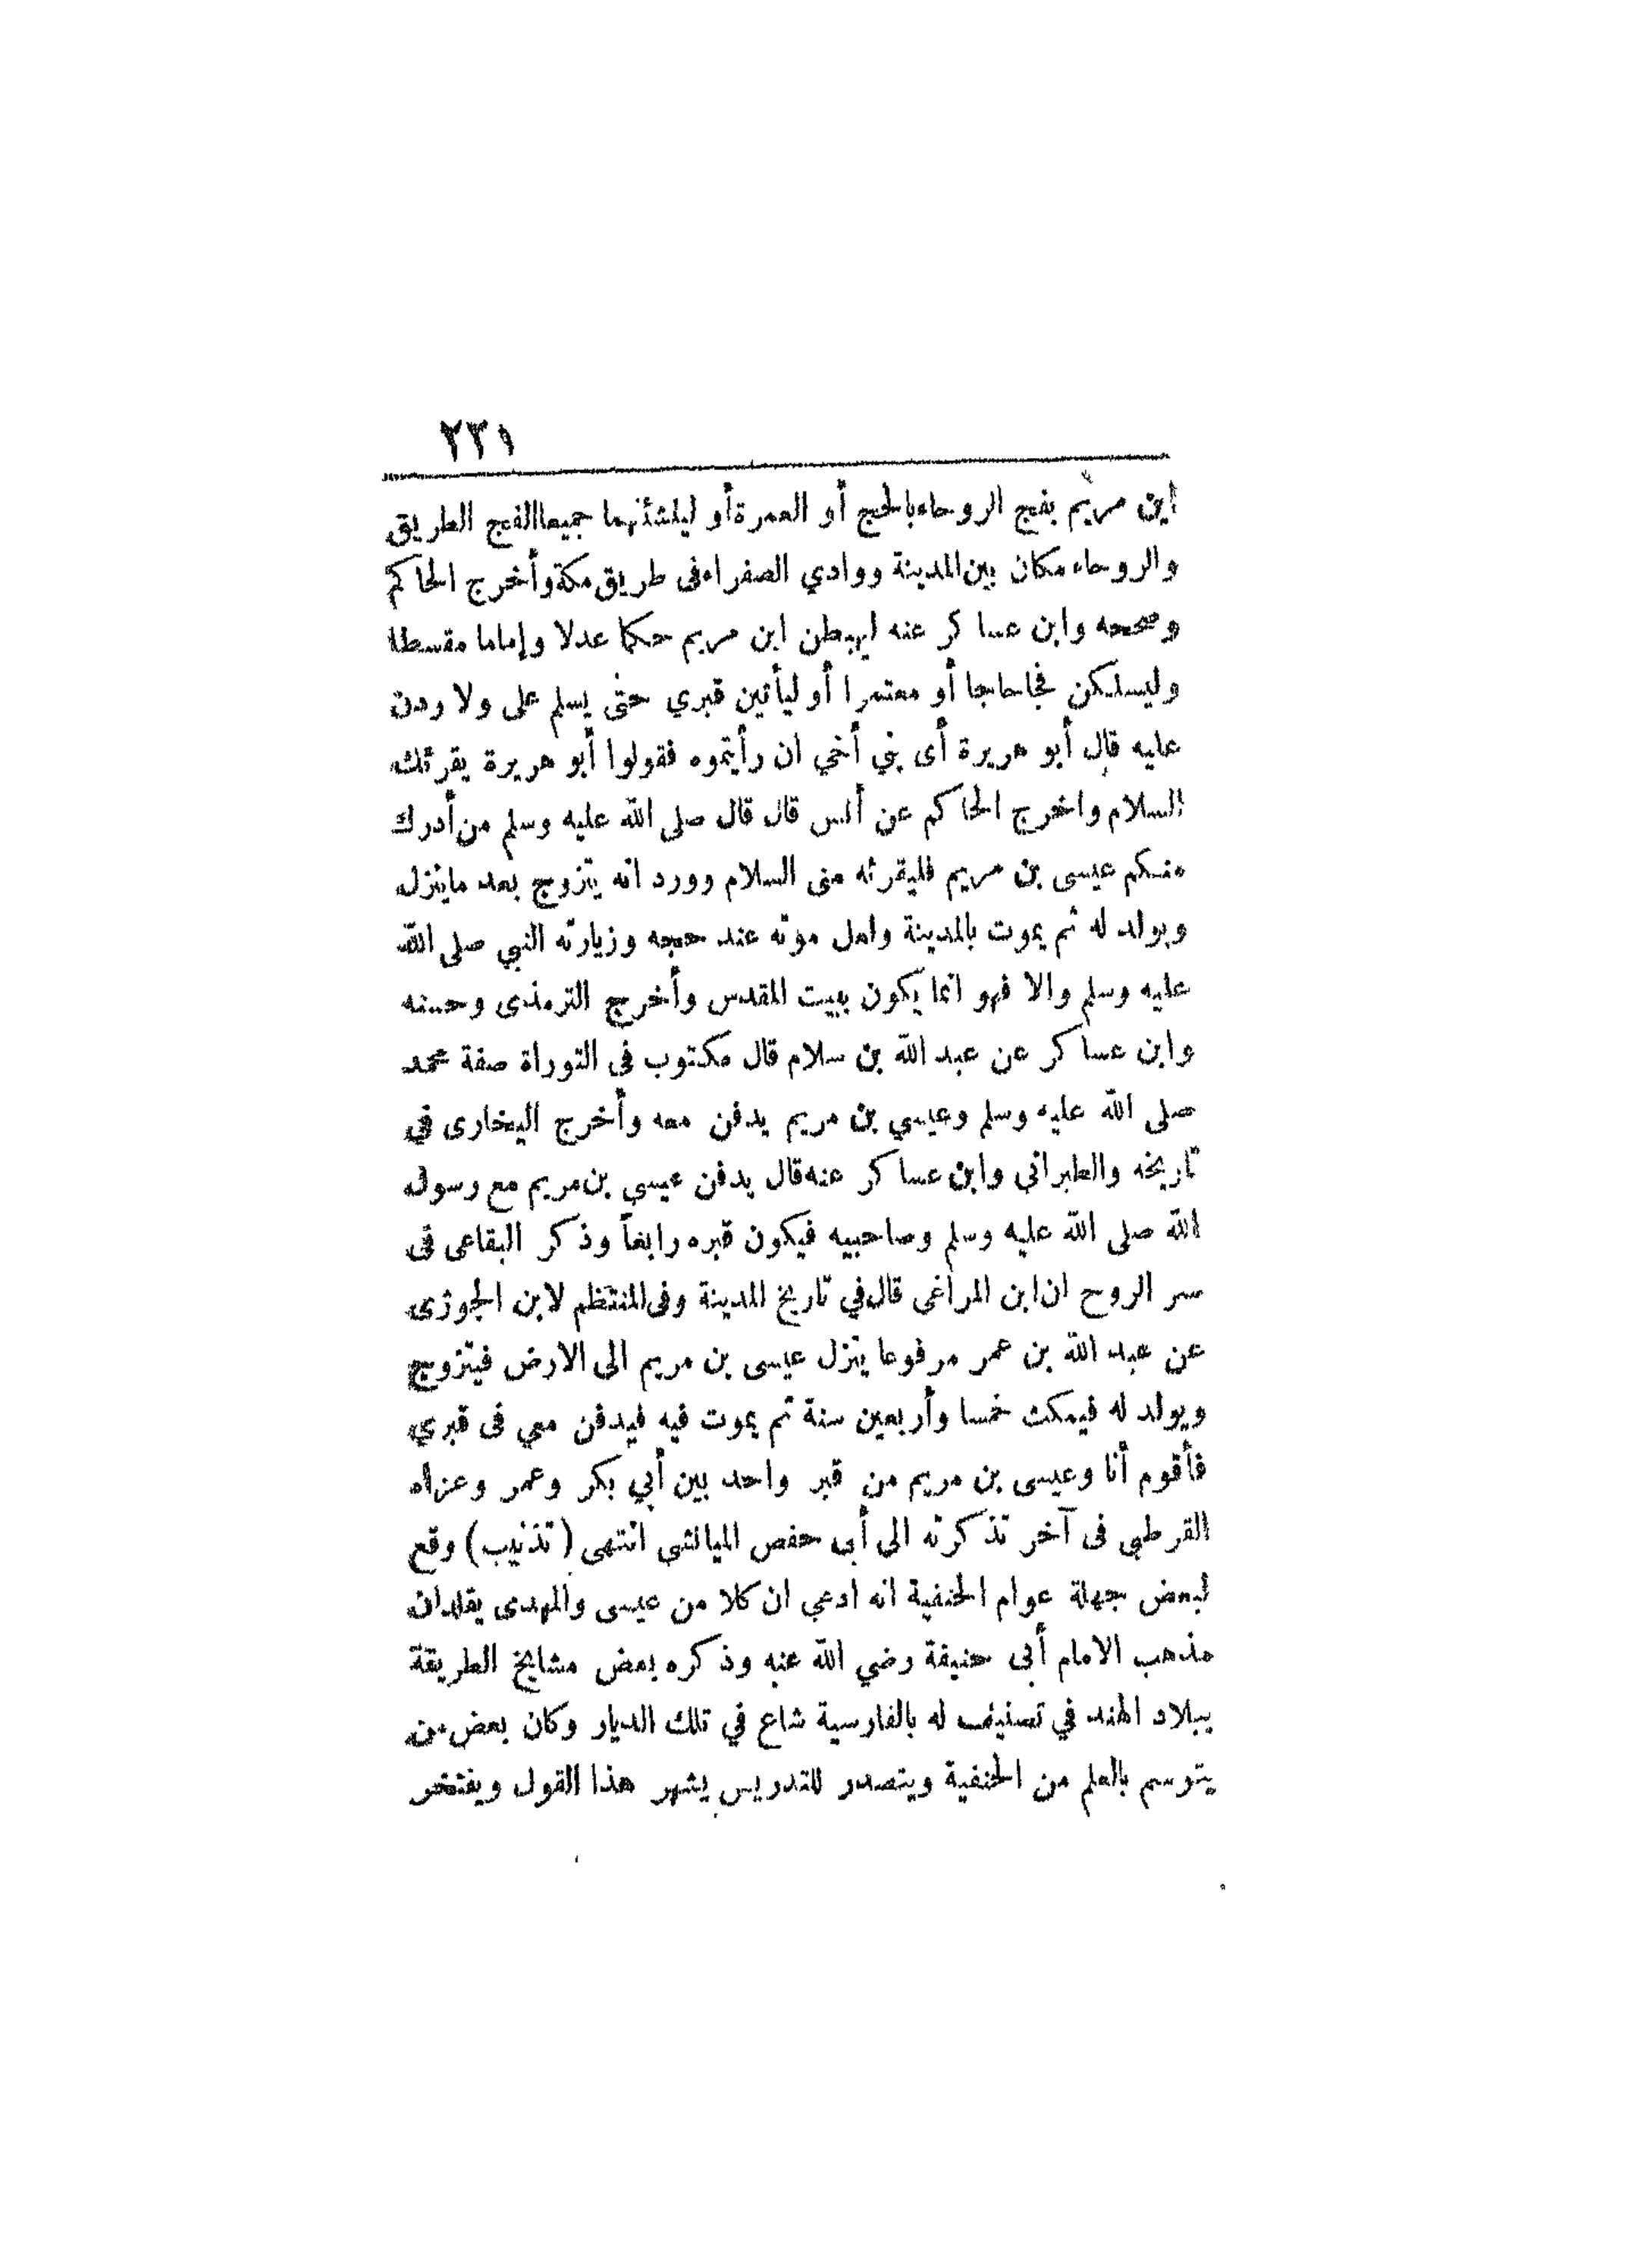 ٢٣١
ابن مريم بفج الروحاء بالحج أو العمرة أو ليثنينهما جميعا الفج الطريق
والروحاء مكان بين المدينة ووادي الصفراء فى طريق مكة وأخرج الحاكم
وصححه وابن عساكر عنه ليهبطن ابن مريم حكما عدلا وإماما مقسطا
وليسلكن فجا حاجا أو معتمرا أو ليأتين قبري حتى يسلم على ولا ردن
عليه قال أبو هريرة أى بني أخي ان رأيتموه فقولوا أبو هريرة يقرئك
السلام واخرج الحاكم عن أنس قال قال صلى الله عليه وسلم من أدرك
منكم عيسى بن مريم فليقرئه منى السلام وورد انه يتزوج بعد ما ينزل
ويولد له ثم يموت بالمدينة ولعل موته عند حجه وزيارته النبي صلى الله
عليه وسلم والا فهو انما يكون ببيت المقدس وأخرج الترمذى وحسنه
وابن عساكر عن عبد الله بن سلام قال مكتوب فى التوراة صفة محمد
صلى الله عليه وسلم وعيسي بن مريم يدفن معه وأخرج البخارى في
تاريخه والطبراني وابن عساكر عنه قال يدفن عيسي بن مريم مع رسول
الله صلى الله عليه وسلم وصاحبيه فيكون قبره رابعاً وذكر البقاعى فى
سر الروح ان ابن المراغى قال في تاريخ المدينة وفى المنتظم لابن الجوزى
عن عبد الله بن عمر مرفوعا ينزل عيسى بن مريم الى الارض فيتزوج
ويولد له فيمكث خمسا وأربعين سنة ثم يموت فيه فيدفن معي فى قبري
فأقوم أنا وعيسى بن مريم من قبر واحد بين أبي بكر وعمر وعزاه
القرطبى فى آخر تذكرته الى أبى حفص الميانشى انتهى (تذنيب) وقع
لبعض جهلة عوام الحنفية انه ادعي ان كلا من عيسى والمهدى يقلدان
مذهب الامام أبى حنيفة رضي الله عنه وذكره بعض مشايخ الطريقة
ببلاد الهند في تصنيف له بالفارسية شاع في تلك الديار وكان بعض من
يتوسم بالعلم من الحنفية ويتصدر للتدريس يشهر هذا القول ويفتخر